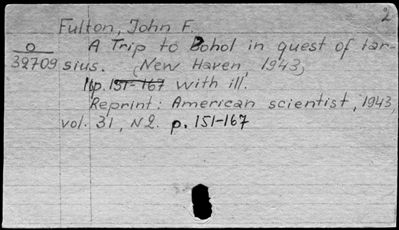 2
Fulton, John F.
O A Trip to Bohol in quest of tar-
39709 sius. (New Haven 1943)
16p. 151-167 with ill.
Reprint: American scientist, 1943,
vol. 31, N2. p. 151-167